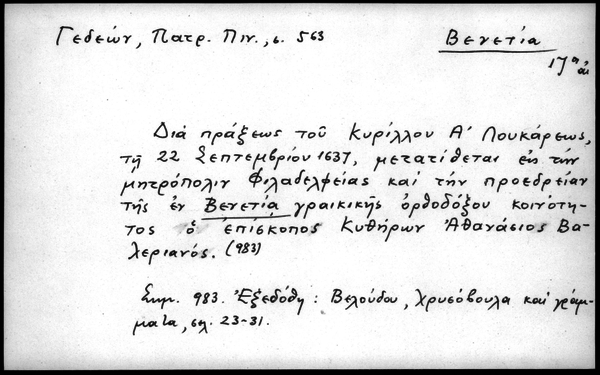 Γεδεών, Πατρ. Πιν., σ. 563
Βενετία
17ος αἰ
Διὰ πράξεως τοῦ Κυρίλλου Α' Λουκάρεως,
τῇ 22 Σεπτεμβρίου 1637, μετατίθεται εἰς τὴν
μητρόπολιν Φιλαδελφείας καὶ τὴν προεδρείαν
τῆς ἐν Βενετίᾳ γραικικῆς ὀρθοδόξου κοινότη-
τος ὁ ἐπίσκοπος Κυθήρων Ἀθανάσιος Βα-
λεριανός. (983)
Σημ. 983. Ἐξεδόθη: Βελούδου, Χρυσόβουλα καὶ γράμ-
ματα, σελ. 23-31.